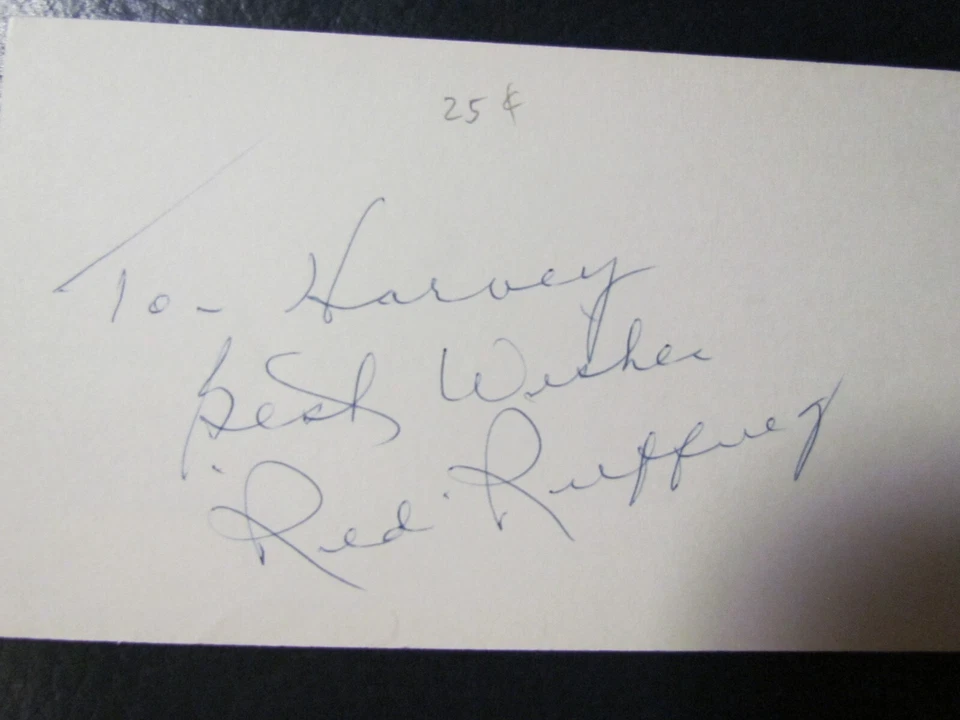 25¢
To - Harvey
Best Wishes
"Red" Ruffing